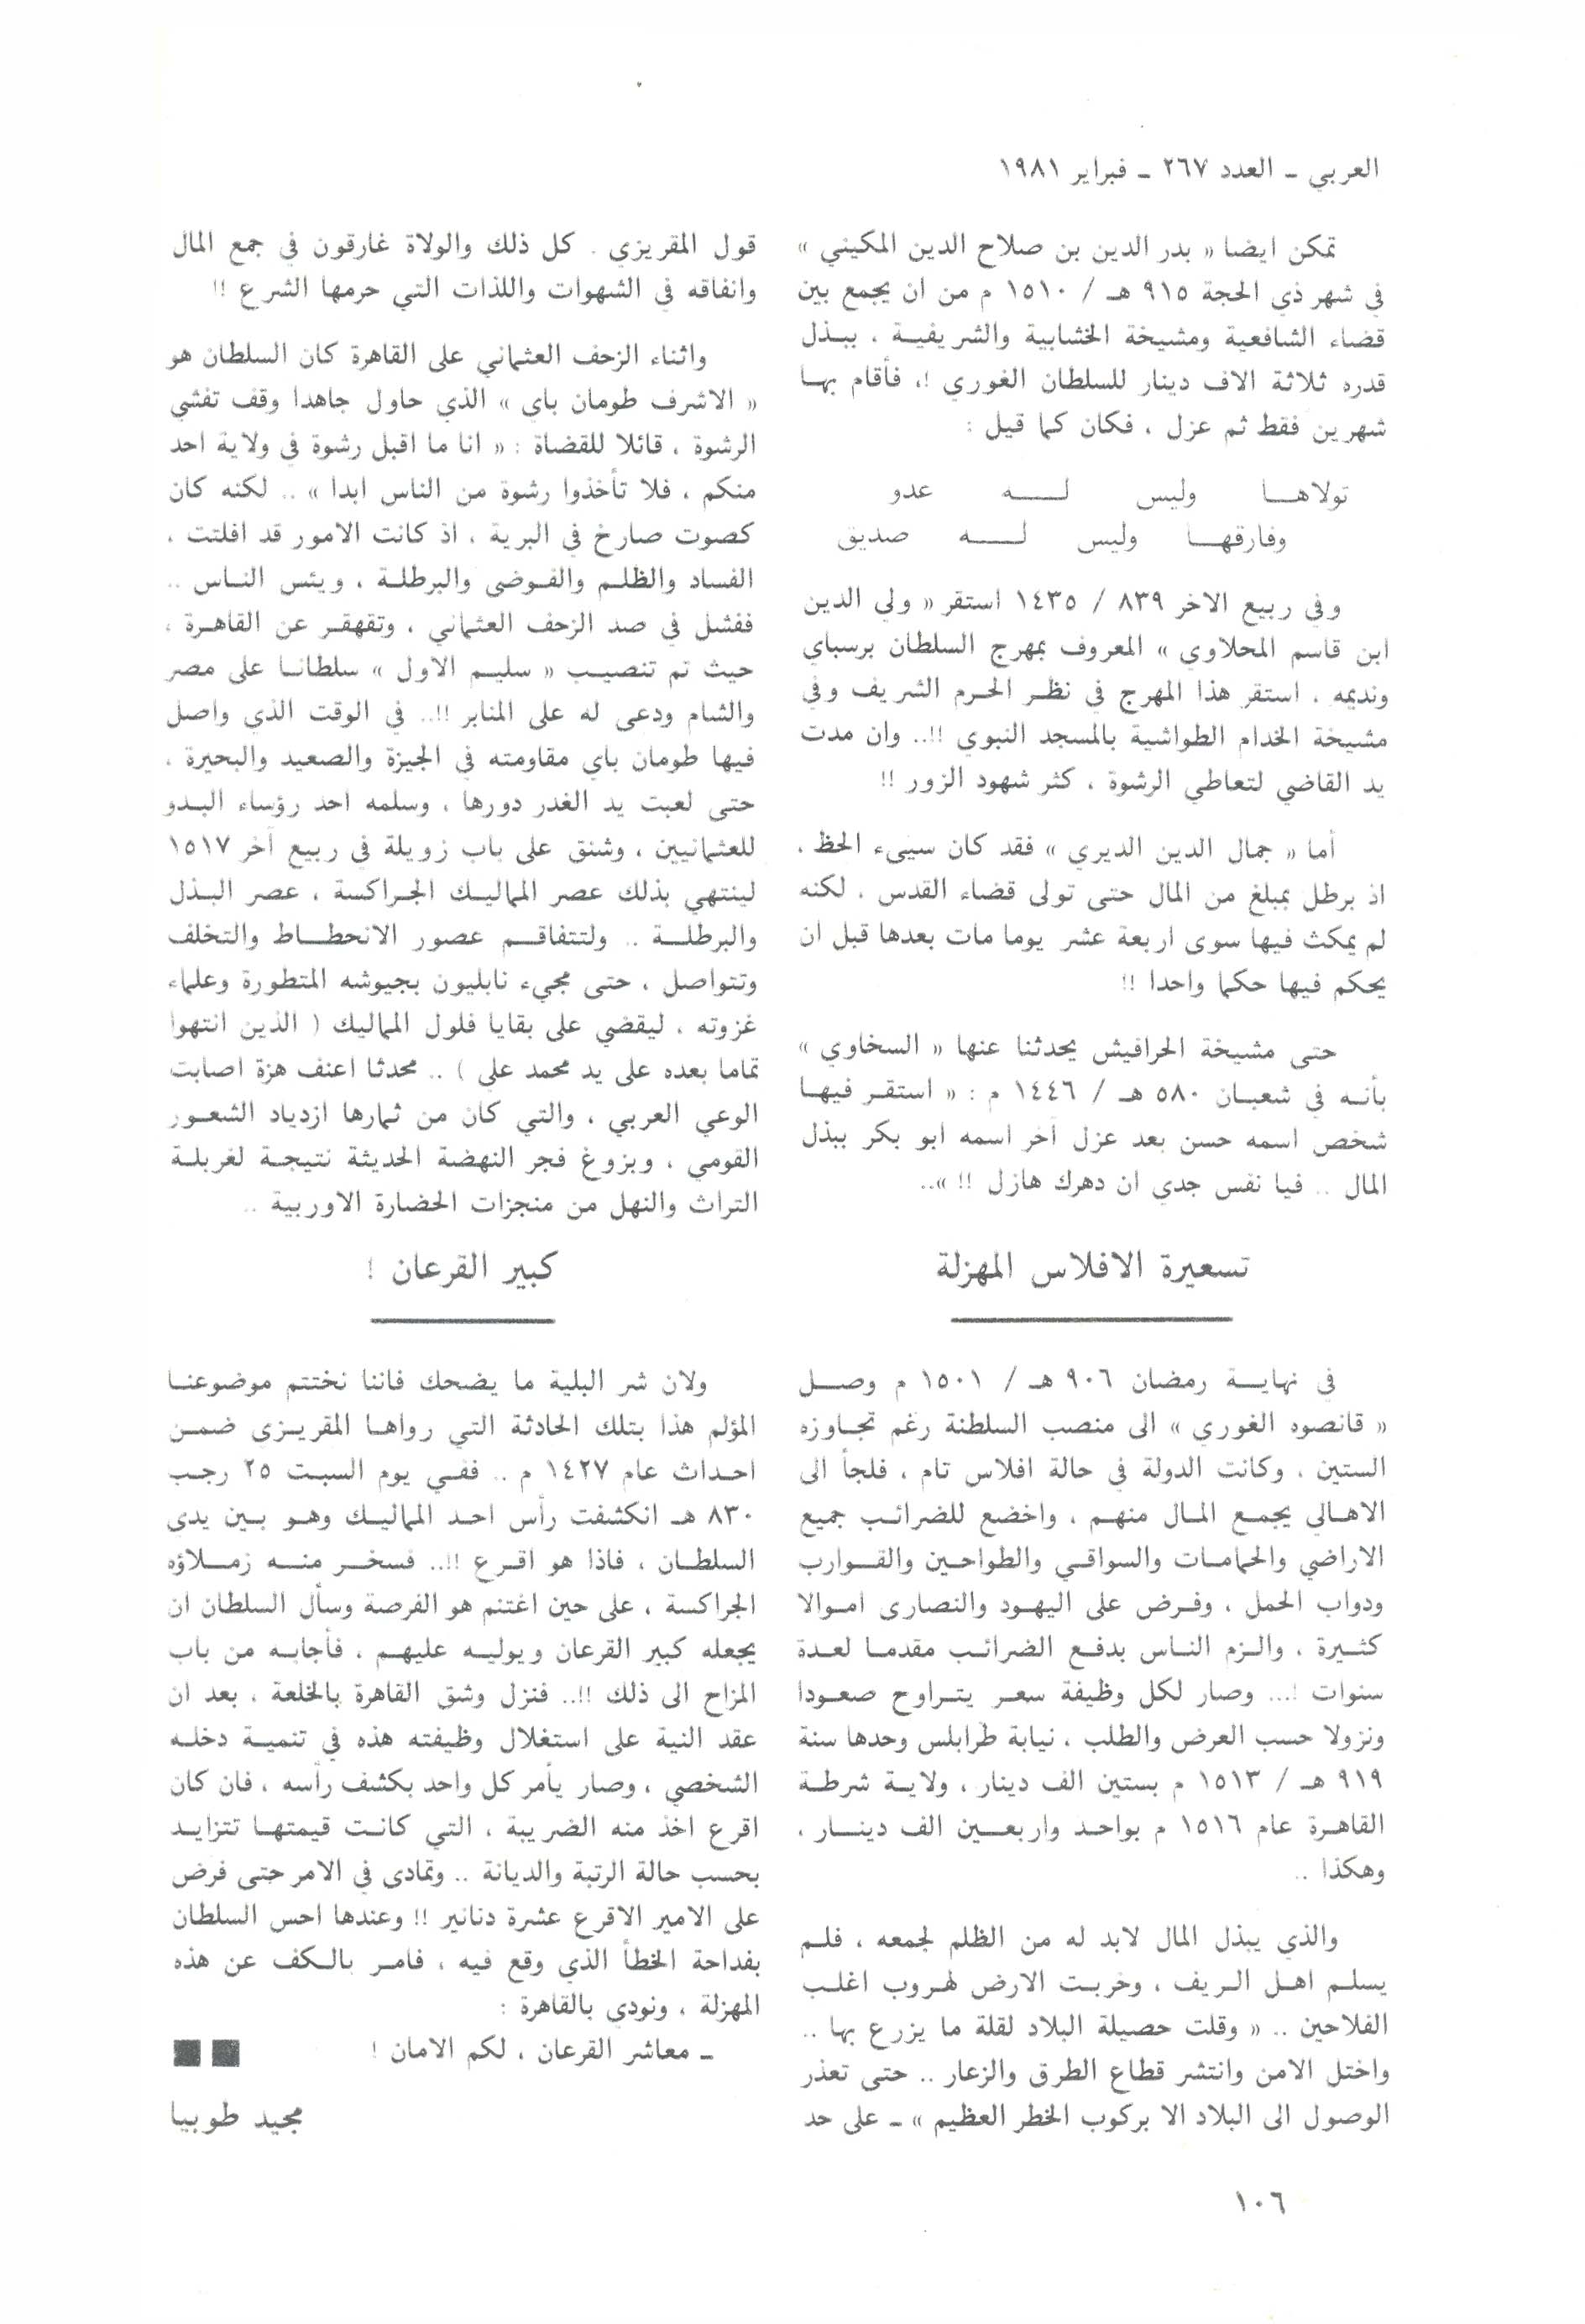 العربي ـ العدد ٢٦٧ ـ فبراير ١٩٨١
تمكن ايضا « بدر الدين بن صلاح الدين المكيني »
في شهر ذي الحجة ٩١٥ هـ / ١٥١٠ م من ان يجمع بين
قضاء الشافعية ومشيخة الخشابية والشريفية ، ببذل
قدره ثلاثة الاف دينار للسلطان الغوري !، فأقام بها
شهرين فقط ثم عزل ، فكان كما قيل :
تولاها وليس له عدو
وفارقها وليس له صديق
وفي ربيع الاخر ٨٣٩ / ١٤٣٥ استقر « ولي الدين
ابن قاسم المحلاوي » المعروف بمهرج السلطان برسباي
ونديمه ، استقر هذا المهرج في نظر الحرم الشريف وفي
مشيخة الخدام الطواشية بالمسجد النبوي !!.. وان مدت
يد القاضي لتعاطي الرشوة ، كثر شهود الزور !!
أما « جمال الدين الديري » فقد كان سييء الحظ ،
اذ برطل بمبلغ من المال حتى تولى قضاء القدس ، لكنه
لم يمكث فيها سوى اربعة عشر يوما مات بعدها قبل ان
يحكم فيها حكما واحدا !!
حتى مشيخة الحرافيش يحدثنا عنها « السخاوي »
بأنه في شعبان ٥٨٠ هـ / ١٤٤٦ م : « استقر فيها
شخص اسمه حسن بعد عزل آخر اسمه ابو بكر ببذل
المال .. فيا نفس جدي ان دهرك هازل !! »..
تسعيرة الافلاس المهزلة
في نهاية رمضان ٩٠٦ هـ / ١٥٠١ م وصل
« قانصوه الغوري » الى منصب السلطنة رغم تجاوزه
الستين ، وكانت الدولة في حالة افلاس تام ، فلجأ الى
الاهالي يجمع المال منهم ، واخضع للضرائب جميع
الاراضي والحمامات والسواقي والطواحين والقوارب
ودواب الحمل ، وفرض على اليهود والنصارى اموالا
كثيرة ، والزم الناس بدفع الضرائب مقدما لعدة
سنوات !... وصار لكل وظيفة سعر يتراوح صعودا
ونزولا حسب العرض والطلب ، نيابة طرابلس وحدها سنة
٩١٩ هـ / ١٥١٣ م بستين الف دينار ، ولاية شرطة
القاهرة عام ١٥١٦ م بواحد واربعين الف دينار ،
وهكذا ..
والذي يبذل المال لابد له من الظلم لجمعه ، فلم
يسلم اهل الريف ، وخربت الارض لهروب اغلب
الفلاحين .. « وقلت حصيلة البلاد لقلة ما يزرع بها ..
واختل الامن وانتشر قطاع الطرق والزعار .. حتى تعذر
الوصول الى البلاد الا بركوب الخطر العظيم » ـ على حد
قول المقريزي . كل ذلك والولاة غارقون في جمع المال
وانفاقه في الشهوات واللذات التي حرمها الشرع !!
واثناء الزحف العثماني على القاهرة كان السلطان هو
« الاشرف طومان باي » الذي حاول جاهدا وقف تفشي
الرشوة ، قائلا للقضاة : « انا ما اقبل رشوة في ولاية احد
منكم ، فلا تأخذوا رشوة من الناس ابدا » .. لكنه كان
كصوت صارخ في البرية ، اذ كانت الامور قد افلتت ،
الفساد والظلم والفوضى والبرطلة ، ويئس الناس ..
ففشل في صد الزحف العثماني ، وتقهقر عن القاهرة ،
حيث تم تنصيب « سليم الاول » سلطانا على مصر
والشام ودعى له على المنابر !!.. في الوقت الذي واصل
فيها طومان باي مقاومته في الجيزة والصعيد والبحيرة ،
حتى لعبت يد الغدر دورها ، وسلمه احد رؤساء البدو
للعثمانيين ، وشنق على باب زويلة في ربيع آخر ١٥١٧
لينتهي بذلك عصر المماليك الجراكسة ، عصر البذل
والبرطلة .. ولتتفاقم عصور الانحطاط والتخلف
وتتواصل ، حتى مجيء نابليون بجيوشه المتطورة وعلماء
غزوته ، ليقضي على بقايا فلول المماليك ( الذين انتهوا
تماما بعده على يد محمد على ) .. محدثا اعنف هزة اصابت
الوعي العربي ، والتي كان من ثمارها ازدياد الشعور
القومي ، وبزوغ فجر النهضة الحديثة نتيجة لغربلة
التراث والنهل من منجزات الحضارة الاوربية ..
كبير القرعان !
ولان شر البلية ما يضحك فاننا نختتم موضوعنا
المؤلم هذا بتلك الحادثة التي رواها المقريزى ضمن
احداث عام ١٤٢٧ م .. ففي يوم السبت ٢٥ رجب
٨٣٠ هـ انكشفت رأس احد المماليك وهو بين يدى
السلطان ، فاذا هو اقرع !!.. فسخر منه زملاؤه
الجراكسة ، على حين اغتنم هو الفرصة وسأل السلطان ان
يجعله كبير القرعان ويوليه عليهم ، فأجابه من باب
المزاح الى ذلك !!.. فنزل وشق القاهرة بالخلعة ، بعد ان
عقد النية على استغلال وظيفته هذه في تنمية دخله
الشخصي ، وصار يأمر كل واحد بكشف رأسه ، فان كان
اقرع اخذ منه الضريبة ، التي كانت قيمتها تتزايد
بحسب حالة الرتبة والديانة .. وتمادى في الامر حتى فرض
على الامير الاقرع عشرة دنانير !! وعندها احس السلطان
بفداحة الخطأ الذي وقع فيه ، فامر بالكف عن هذه
المهزلة ، ونودي بالقاهرة :
ـ معاشر القرعان ، لكم الامان !
مجيد طوبيا
١٠٦